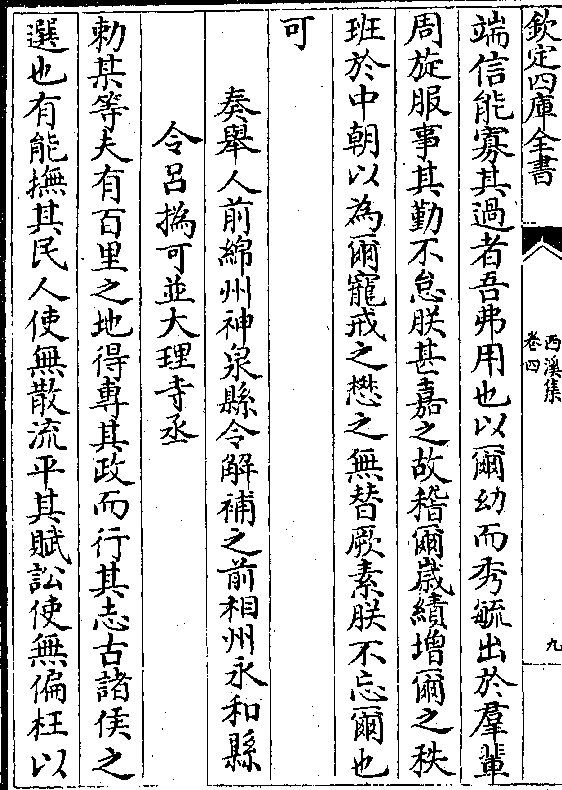 欽定四庫全書
西溪集
卷四
九
端信能寡其過者吾弗用也以爾幼而秀毓出於羣輩
周旋服事其勤不怠朕甚嘉之故稽爾歲績增爾之秩
班於中朝以為爾寵戒之懋之無替厥素朕不忘爾也
可
奏舉人前綿州神泉縣令解補之前相州永和縣
令呂撝可並大理寺丞
勅某等夫有百里之地得專其政而行其志古諸侯之
選也有能撫其民人使無散流平其賦訟使無偏枉以